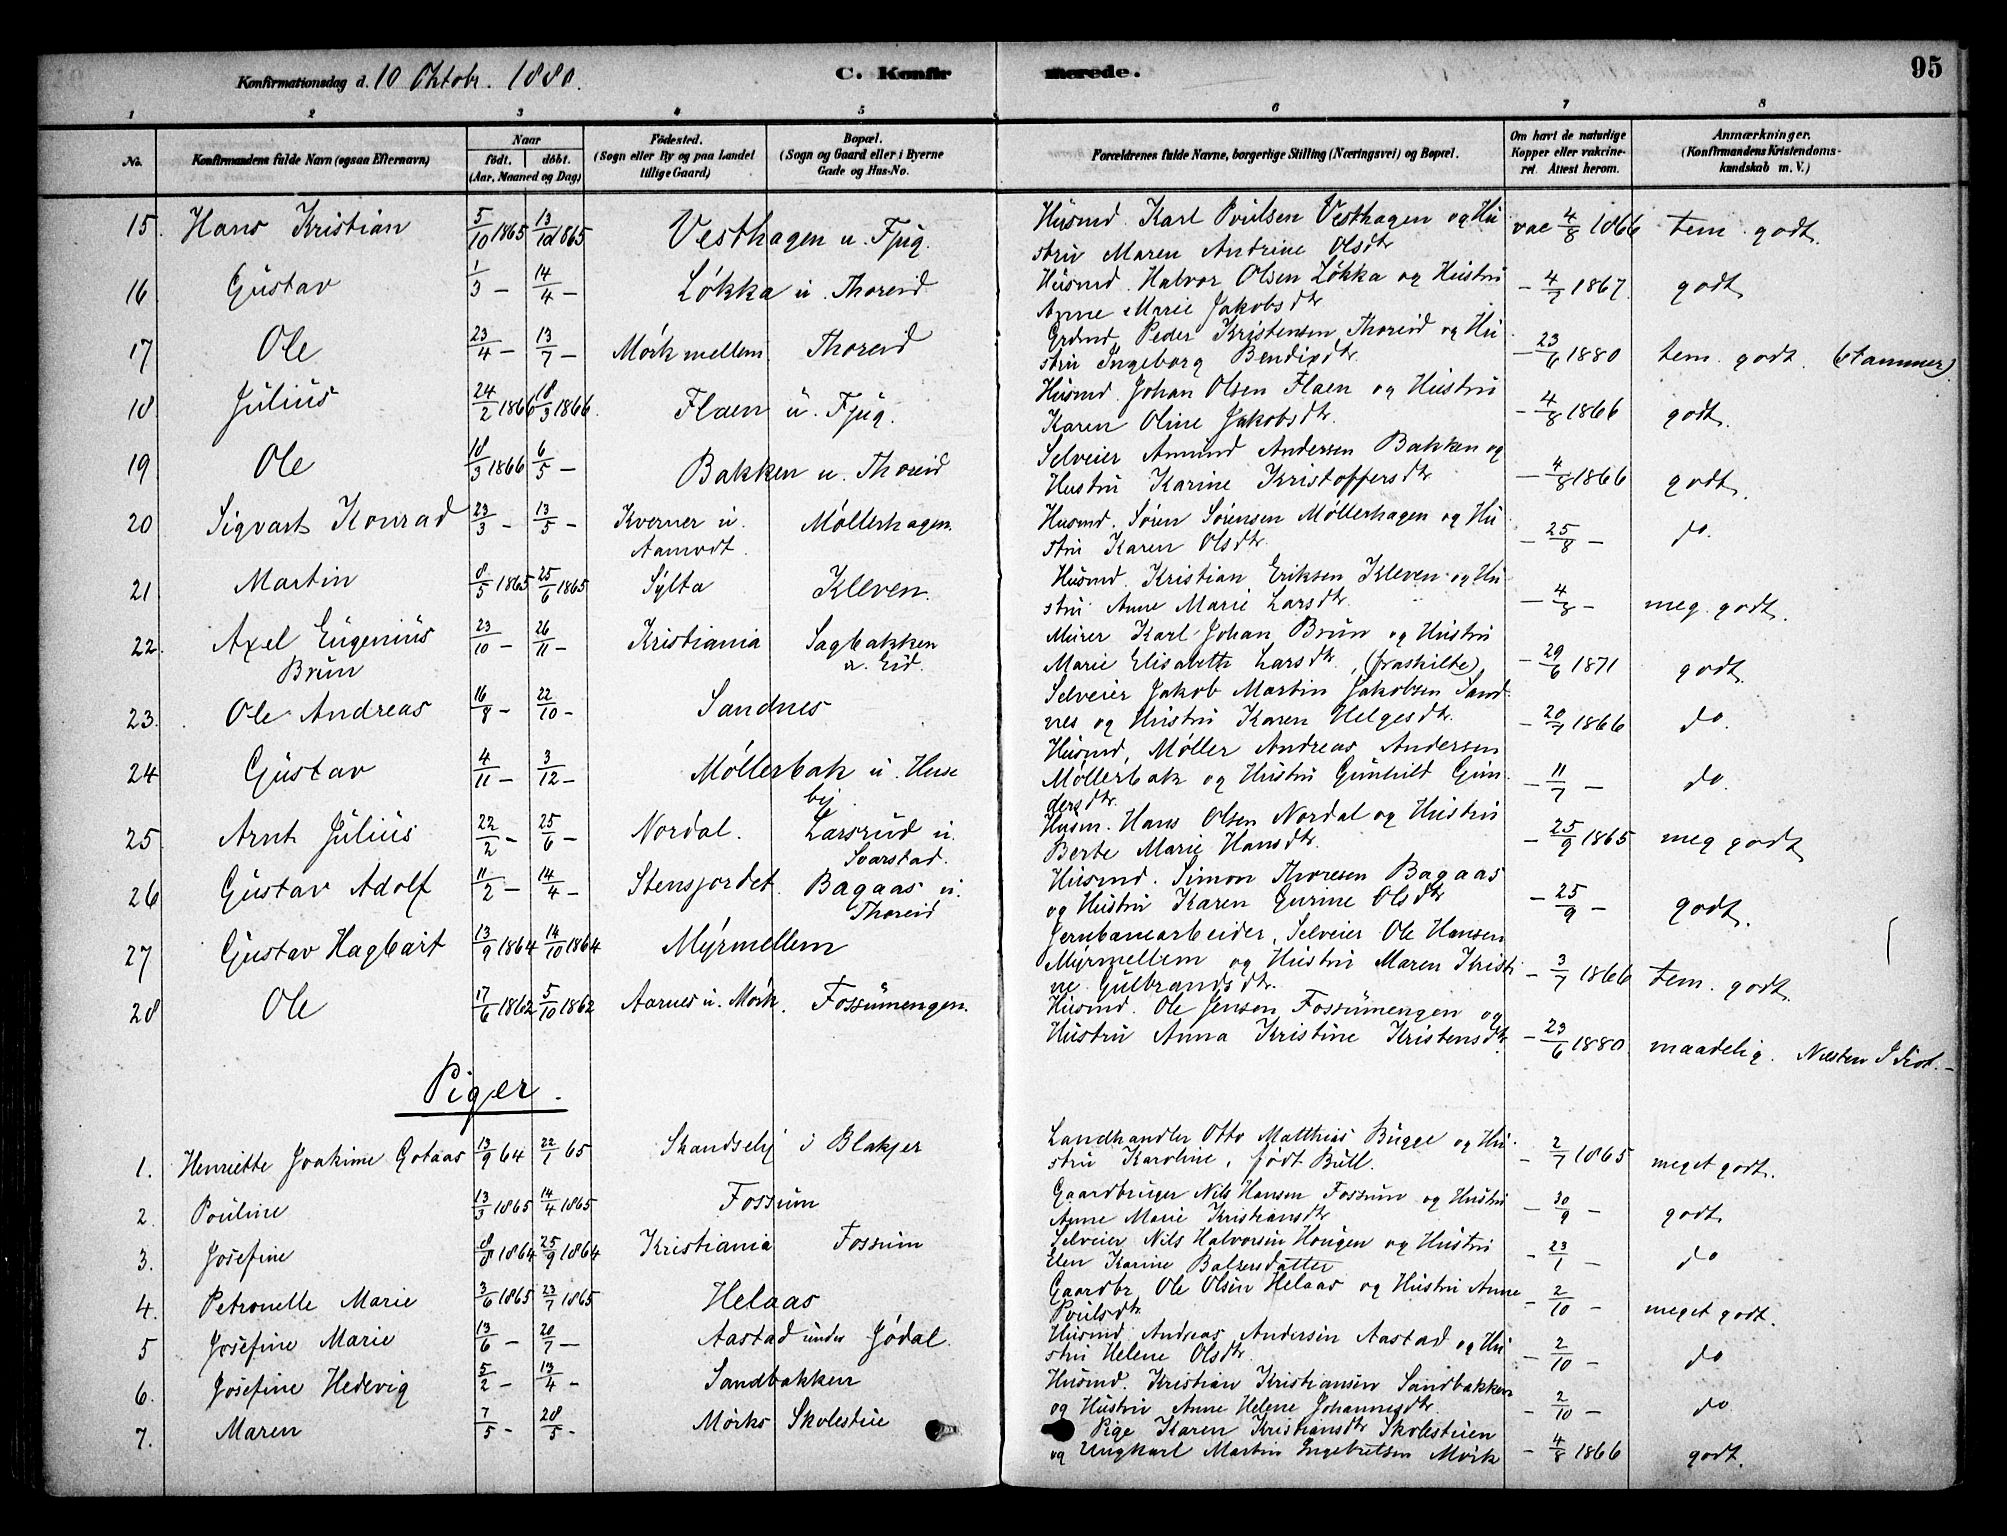 Konfirmationsdag d. 10 Oktobr. 1880. C. Konfirmerede. 95
1 2 3 4 5 6 7 8
No. Konfirmandens fulde Navn (ogsaa Efternavn) Naar født. døbt. (Aar, Maaned og Dag) Fødested. (Sogn eller By og paa Landet tillige Gaard) Bopæl. (Sogn og Gaard eller i Byerne Gade og Hus-No. Forældrenes fulde Navne, borgerlige Stilling (Næringsvei) og Bopæl. Om havt de naturlige Kopper eller vakcineret. Attest herom. Anmærkninger. (Konfirmandens Kristendomskundskab m. V.)
15 Hans Kristian 5/10 1865 13/10 1865 Vesthagen u. Fjug. Husmd. Karl Poulsen Vesthagen og Hustru Maren Andrine Olsdtr vac 4/8 1866 tem. godt.
16 Gustav 1/3 – 14/4 – Løkka u. Thoreid Husmd. Halvor Olsen Løkka og Hustru Anne Marie Jakobsdtr – 4/7 1867. godt
17 Ole 23/4 – 13/7 – Mørk mellem. Thoreid Grdmd. Peder Kristensen Thoreid og Hustru Ingeborg Bendixdtr. – 23/6 1880 tem. godt. (stammer)
18 Julius 24/2 1866 18/3 1866. Flaen u. Fjug. Husmd. Johan Olsen Flaen og Hustru Karen Oline Jakobsdtr. – 4/8 1866 godt.
19 Ole 18/3 1866 6/5 – Bakken u. Thoreid Selveier Amund Andersen Bakken og Hustru Karine Kristoffersdtr – 4/8 1866 godt.
20 Sigvart Konrad 23/3 – 13/5 – Kverner u. Aamodt. Møllerhagen. Husmd. Søren Sørensen Møllerhagen og Hustru Karen Olsdtr. – 25/8 – do.
21 Martin 8/5 1865 25/6 1865 Sylta Kleven. Husmd. Kristian Eriksen Kleven og Hustru Anne Marie Larsdtr. – 4/8 – meg. godt.
22. Axel Eugenius Brun 23/10 – 26/11 – Kristiania Sagbakken u. Eid. Murer Karl Johan Brun og Hustru Marie Elisabeth Larsdtr., (fraskilte), – 29/6 1871 godt.
23. Ole Andreas 16/8 – 22/10 – Sandnes Selveier Jakob Martin Jakobsen Sandnes og Hustru Karen Helgesdtr. – 20/7 1866 do.
24 Gustav 4/11 – 3/12 – Møllerbak u. Huseby. Husmd, Møller Andreas Andersen Møllerbak og Hustru Gunhild Gundersdtr. – 11/7 – do.
25 Arnt Julius 22/2 – 25/6 – Nordal. Larsrud u. Svarstad. Husm. Hans Olsen Nordal og Hustru Berte Marie Hansdtr. – 25/9 1865 meg godt
26 Gustav Adolf 11/2 – 14/4 – Stensjordet. Bagaas u. Thoreid Husmd. Simon Thoresen Bagaas og Hustru Karen Gurine Olsdtr – 25/9 – godt.
27 Gustav Hagbart 13/9 1864 14/10 1864 Myrmellem Jernbanearbeider, Selveier Ole Hansen Myrmellem og Hustru Maren Kristine Gulbrandsdtr. – 3/7 1866 tem. godt.
28 Ole 17/6 1862 5/10 1862 Aarnes u. Mørk. Fossumengen. Husmd. Ole Jensen Fossumengen og Hustru Anna Kristine Kristensdtr. – 23/6 1880. maadelig. Næsten Idiot. –
Piger.
1. Henriette Joakime Gotaas 13/9 64 22/1 65 Skandseby i Blakjer Landhandler Otto Matthias Bugge og Hustru Karoline, født Bull. – 2/7 1865 meget godt.
2. Pouline 13/3 1865 14/4 1865 Fossum Gaardbruger Nils Hansen Fossum og Hustru Anne Marie Kristiansdtr – 30/9 – godt
3. Josefine 8/8 1864 25/9 1864 Kristiania Fossum Selveier Nils Halvorsen Hougen og Hustru Elen Karine Balzersdatter – 23/1 – do
4. Petronelle Marie 3/6 1865 23/7 1865 Helaas Gaardbr. Ole Olsen Helaas og Hustru Anne Poulsdtr – 2/10 – meget godt.
5 Josefine Marie 13/6 – 20/7 – Aastad under Jødal. Husmd Andreas Andersen Aastad og Hustru Helene Olsdtr. – 2/10 – do
6. Josefine Hedevig 5/2 – 13/4 – Sandbakken Husmd. Kristian Kristiansen Sandbakken og Hustru Anne Helene Johannesdtr. – 2/10 – do
7. Maren 7/5 – 28/5 – Mørks Skolestue Pige Karen Kristiansdtr Skolestuen og Ungkarl Martin Ingebretsen Mørk – 4/8 1866 godt.